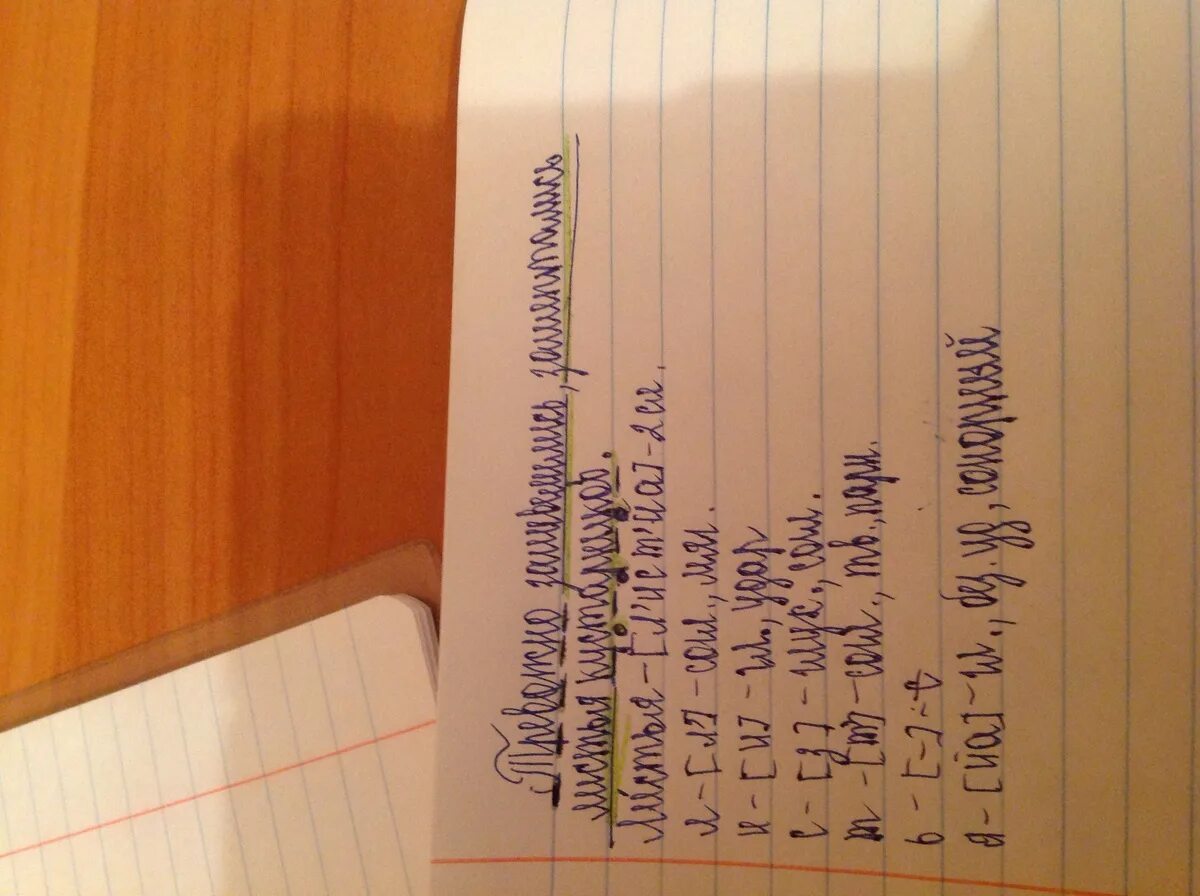 Тревожно зашевелились, зашептались
листья кустарников.
Листья - [л'ист'йа] - 2 сл.
л - [л'] - согл., мяг.
и - [и] - гл., удар
с - [з] - глух., согл.
т - [т] - согл., тв., парн.
ь - [-] -
я - [йа] - гл., без. уд, сонорный